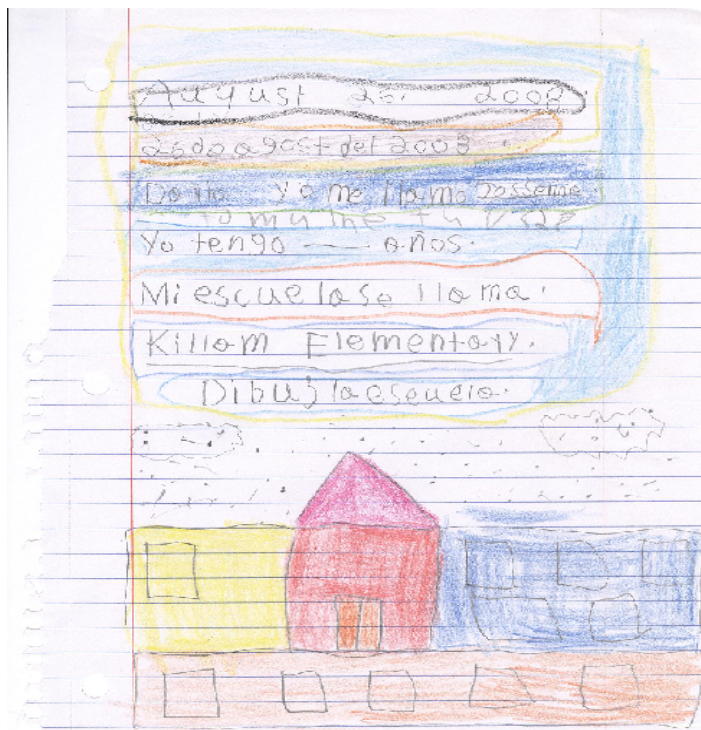 August 26. 2008
26 do agost del 2008
Yo me llamo
Yo tengo — años.
Mi escuela se llama.
Killam Elementary.
Dibuj la escuela.